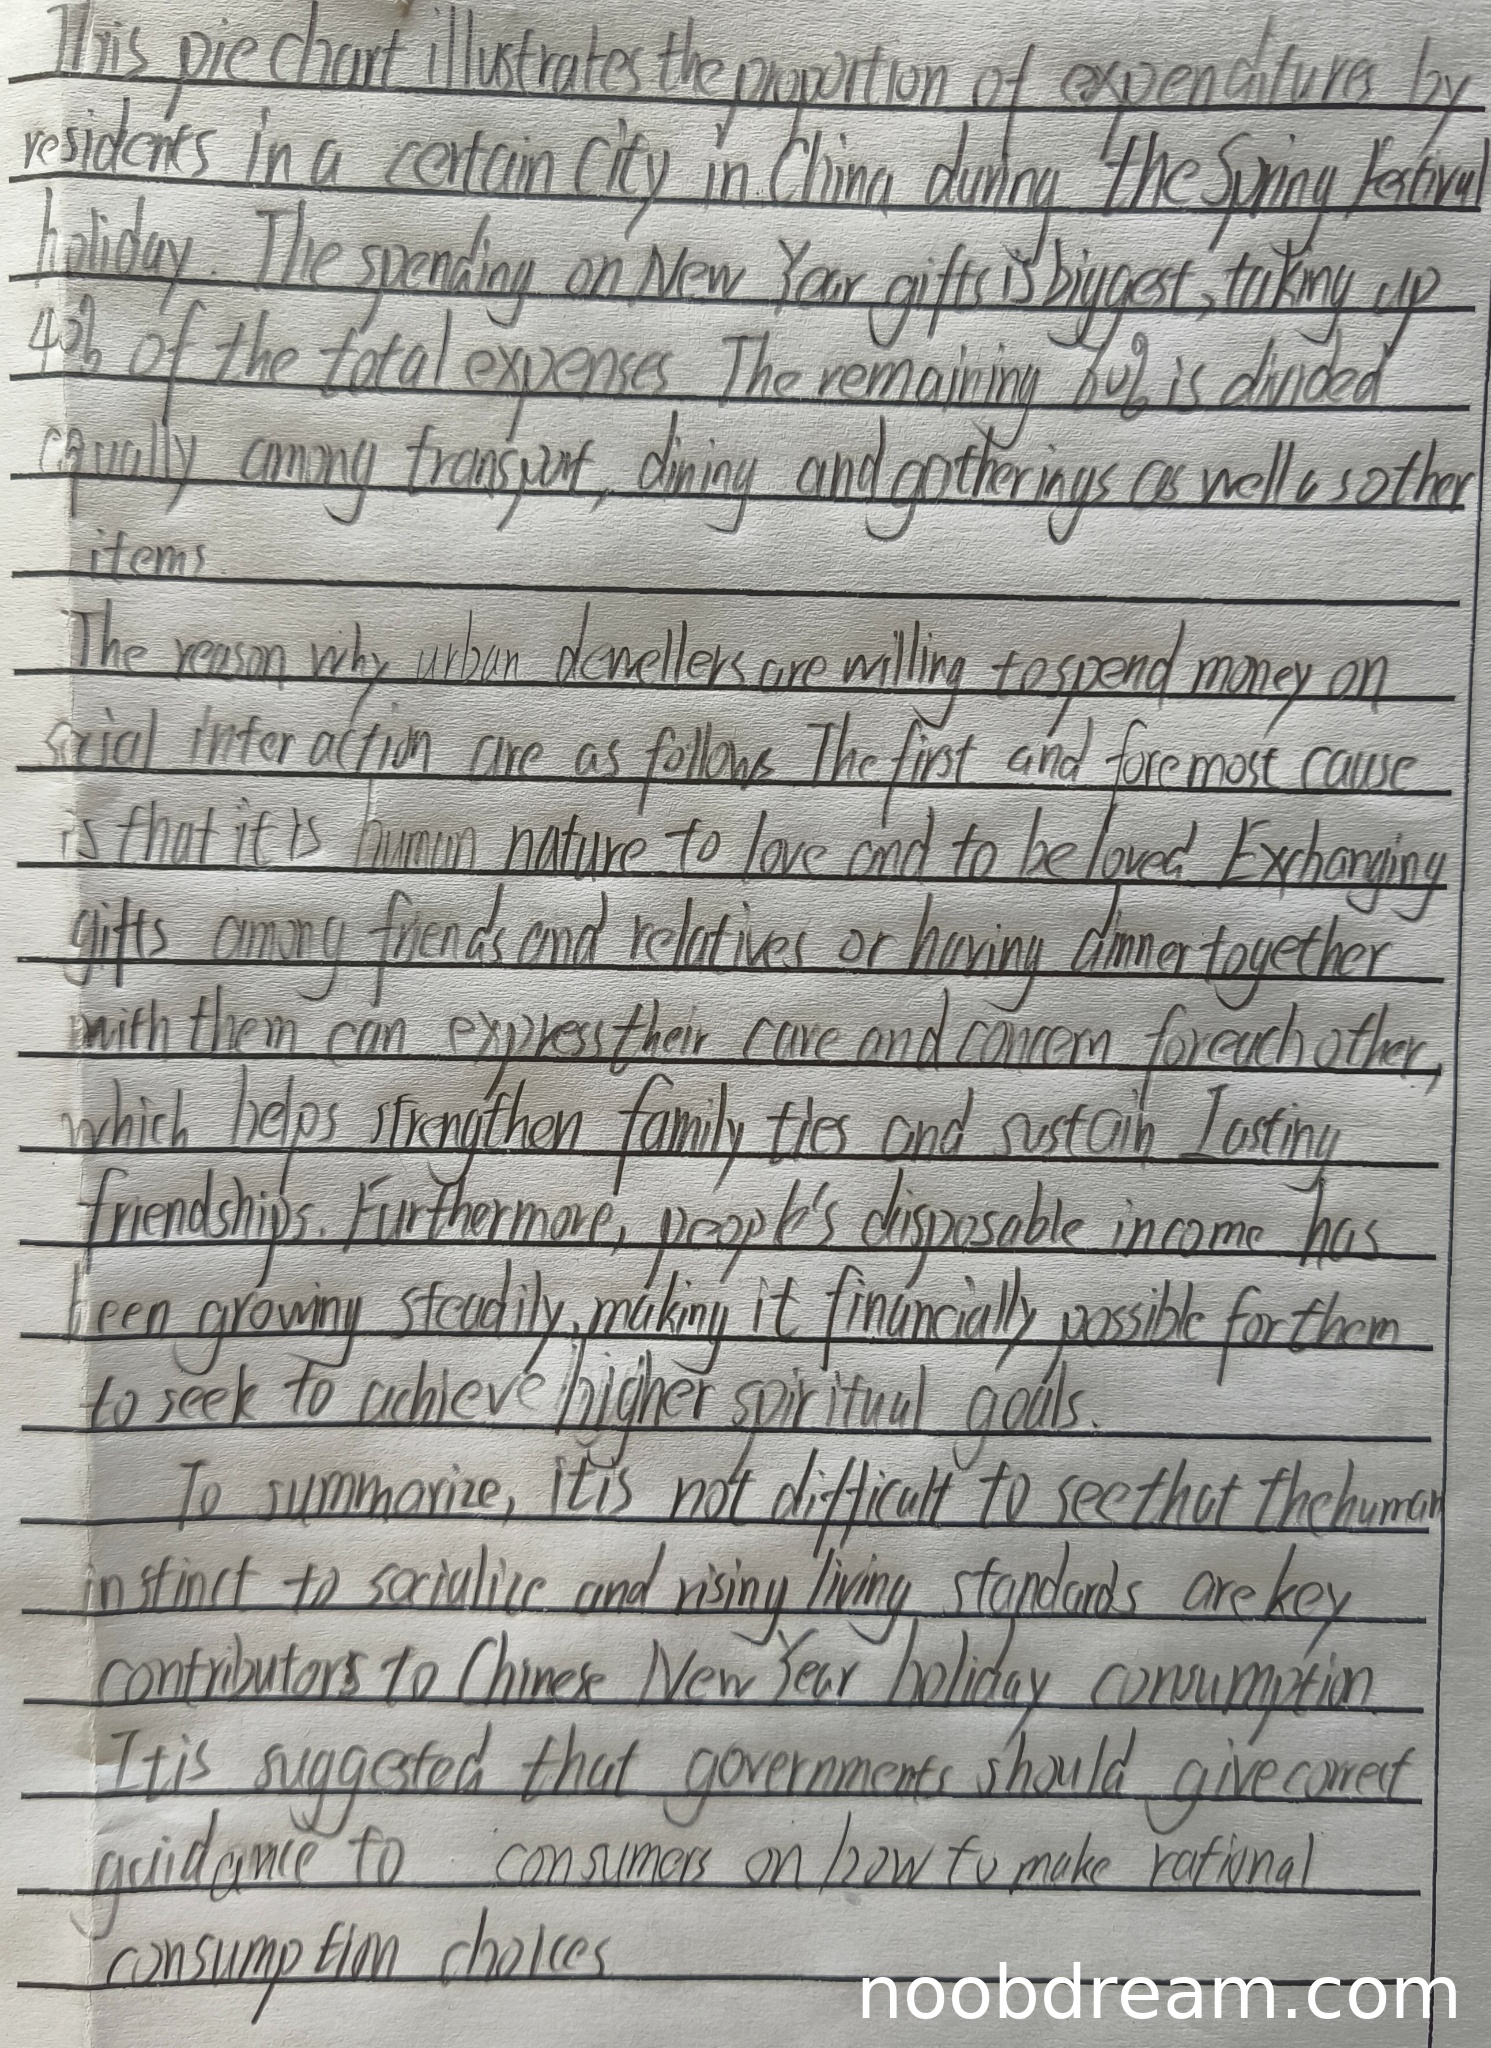 This pie chart illustrates the proportion of expenditures by
residents in a certain City in China during the Spring Festival
holiday. The spending on New Year gifts is biggest, taking up
40% of the total expenses The remaining is divided
equally among transport, dining and gotherings as well as other
items
The reason why urban dewellers are willing to spend money on
social interaction are as follows The first and foremost cause
is that it is human nature to love and to be loved Exchanging
gifts among friends and relatives or having dinner together
with them can express their care and concern for each other,
which helps strengthen family ties and sustain Lasting
friendships. Furthermore, people's disposable income has
been growing steadily, making it financially possible for them
to seek to achieve higher spiritual goals.
To summarize, it is not difficult to see that the human
instinct to socialize and rising living standards are key
contributors to Chinese New Year holiday consumption
It is suggested that governments should give correct
guidance to consumers on how to make rational
consumption choices
noobdream.com